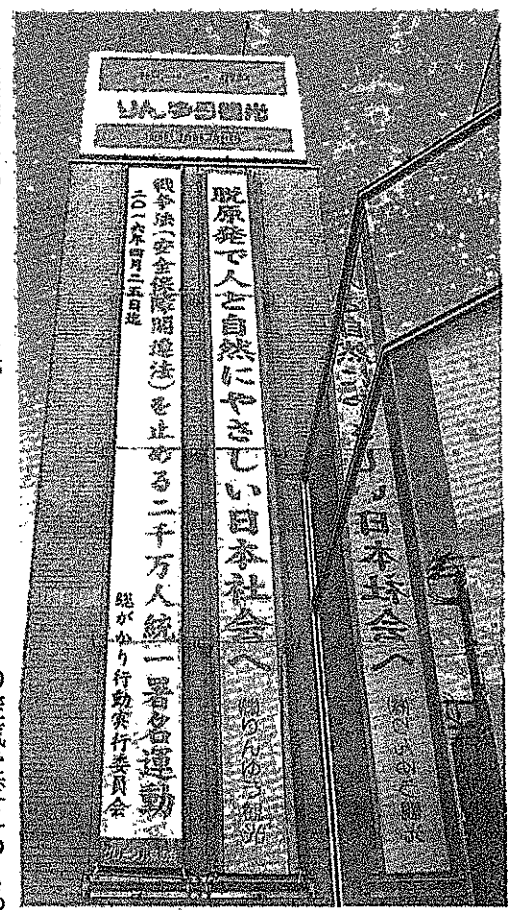 りんゆう観光
脱原発で人と自然にやさしい日本社会へ ㈱りんゆう観光
戦争法(安全保障関連法)を止める二千万人統一署名運動
二〇一六年四月二五日迄
総がかり行動実行委員会
日本社会へ